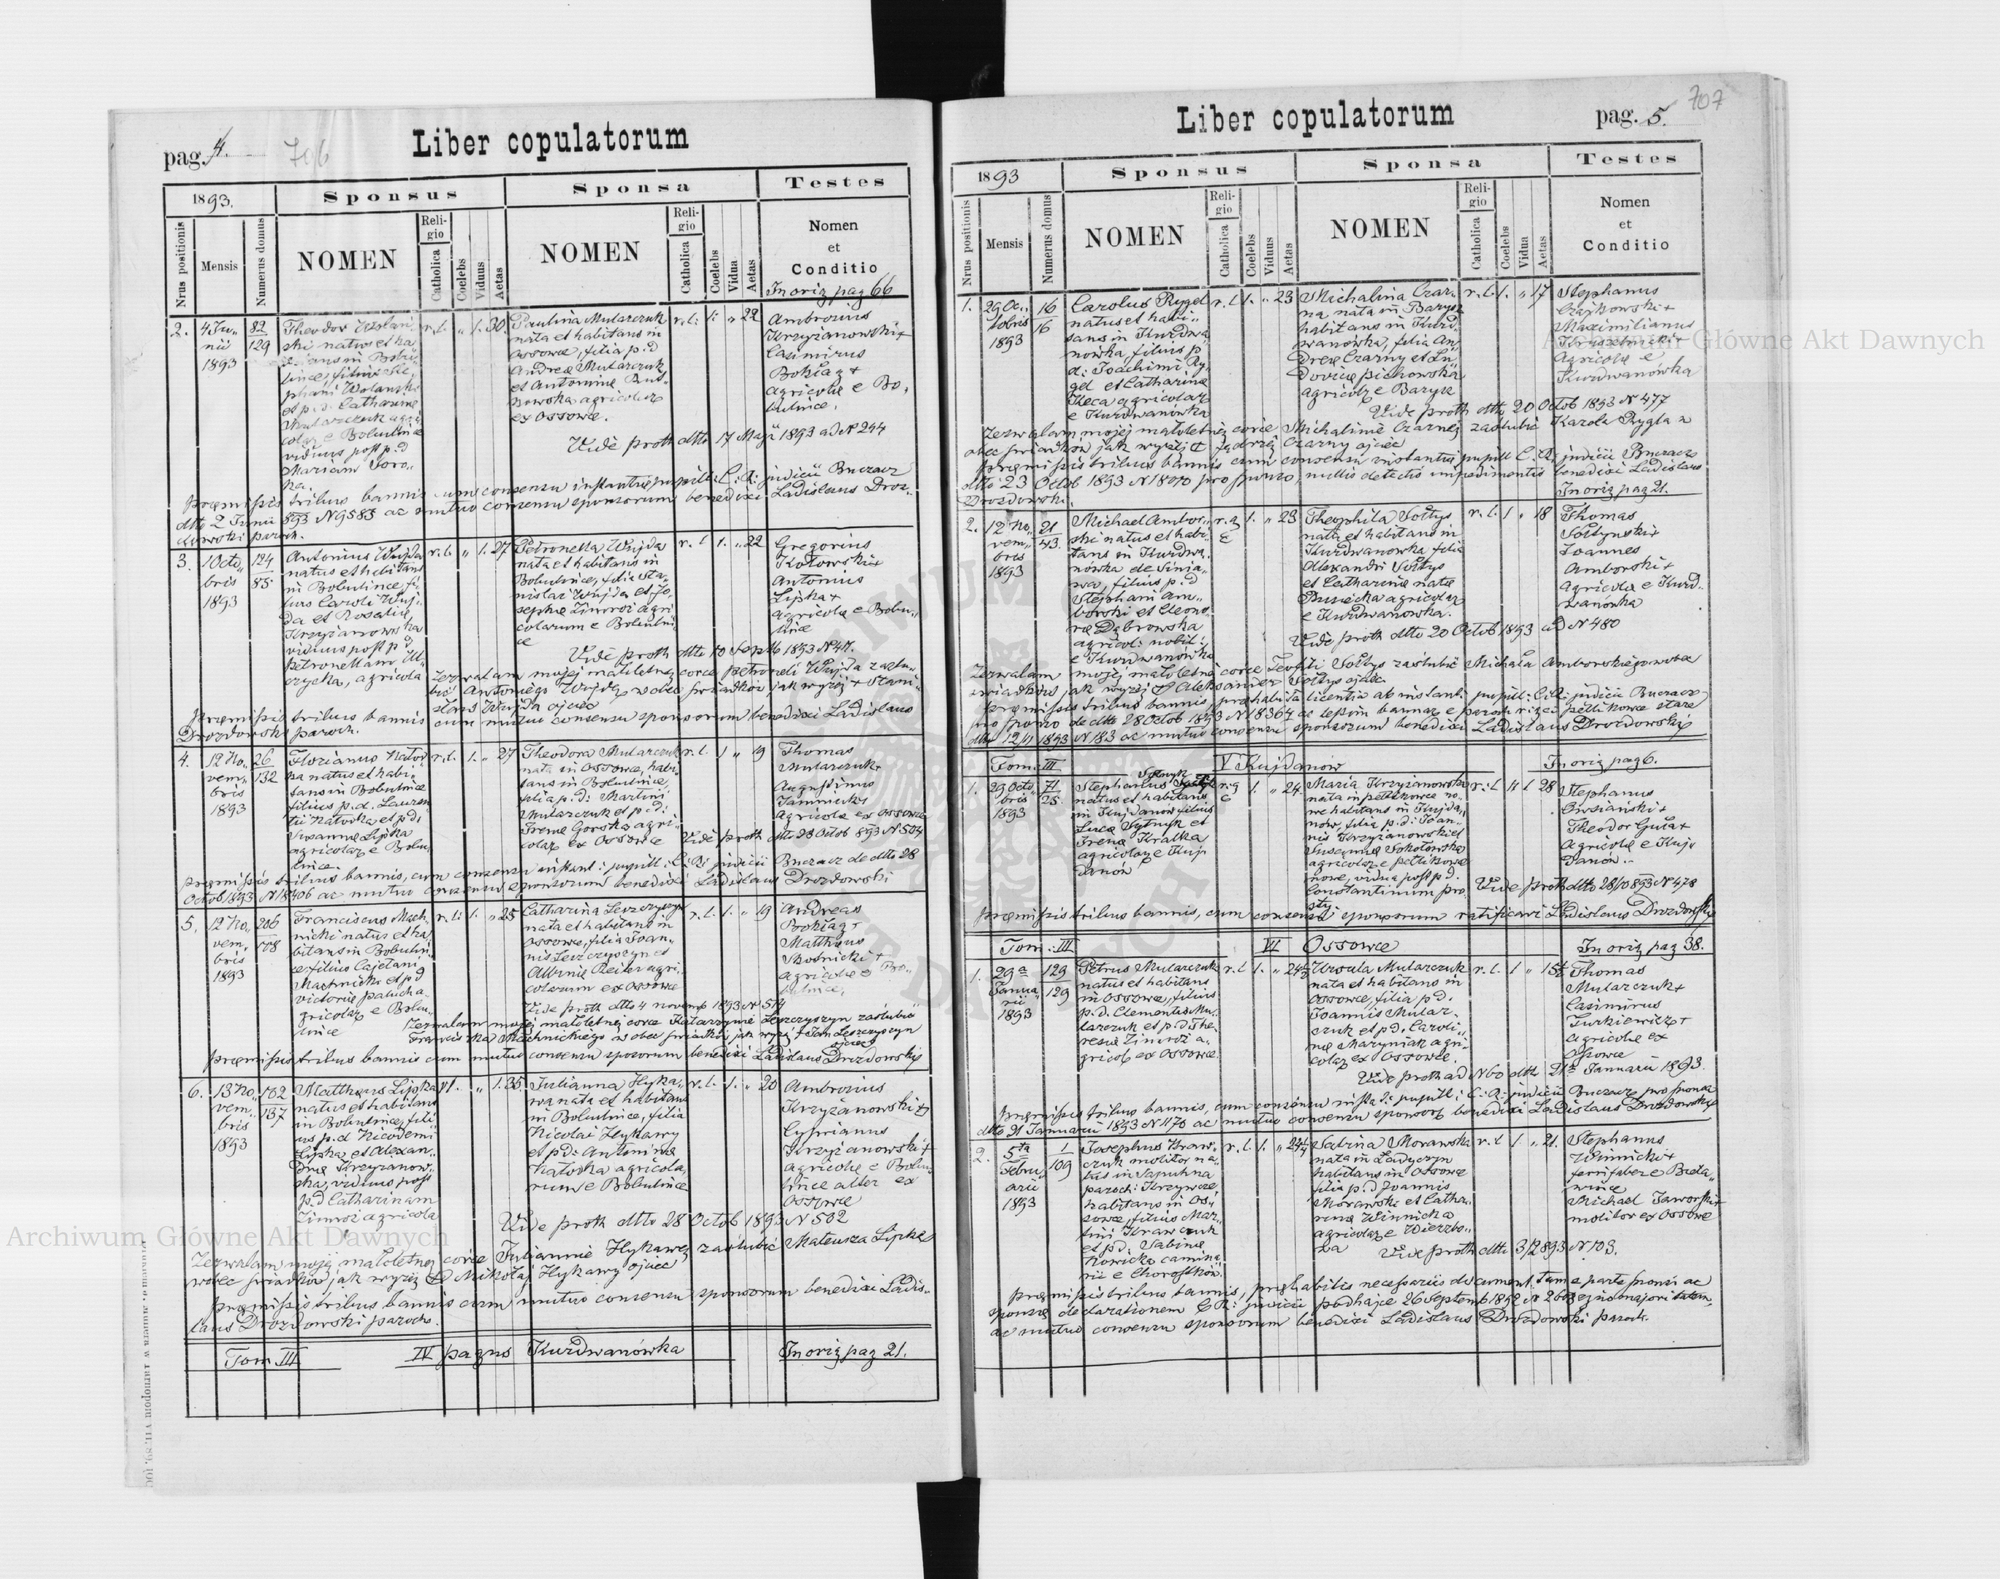 pag. 4.
706
Liber copulatorum
1893.
Sponsus
Sponsa
Testes
Nrus positionis
Mensis
Numerus domus
NOMEN
Religio
Catholica
Coelebs
Viduus
Aetas
NOMEN
Religio
Catholica
Coelebs
Vidua
Aetas
Nomen
et
Conditio
In orig pag 66
2.
4 Ju„
nii
1893
82
129
Theodor
natus et ha
in Bobu„
lince, filius Ste„
phani Wolanski
et p. d. Catharinae
Mularczuk agri„
colar e Bobulince
viduus post p. d
Mariam Soro„
ka.
r. l. „ 1. 30
Paulina Mularczuk
nata et habitans in
Ossowce, filia p. d
Andreae Mularczuk
et Antoninae
agricolar
ex Ossowce.
r. l. 1. „ 22
Ambrosius
Krzyżanowski +
Casimirus
Bokłag +
agricolae e Bo„
bulince.
Vide proth dtto 17 Maji 1893 ad N 244
Praemissis tribus bannis cum consensu instantiae pupill. C. R. judicii Buczacz
dtto 2 Junii 893 N 9583 ac mutuo consensu sponsorum benedixi Ladislaus Droz„
dowski paroch.
3.
1 Octo„
bris
1893
124
85
Antonius Wujda
natus et habitans
in Bobulince, fi„
lius Caroli Wuj„
da et Rosaliae
Krzyżanowska
viduus post p. d
Petronellam
agricola
r. l. „ 1. 27
Petronella Wujda
nata et habitans in
Bobulince, filia Sta„
nislai Wujda et Jo„
sephae Zimroz agri„
colarum e Bobulin„
ce
r. l. 1. „ 22
Gregorius
Kotowski +
Antonius
Lipka +
agricolae e Bobu„
lince
Vide proth dtto 10 Septb 1893 N 411.
Zezwalam mojej małoletnej corce Petroneli Wujda zaślu„
bić Antoniego Wujdę wobec świadków jak wyżej + Stani„
sław Wujda ojciec
Praemissis tribus bannis cum mutuo consensu sponsorum benedixi Ladislaus
Drozdowski paroch.
4.
12 No„
vem„
bris
1893
26
132
Florianus Natoś„
ka natus et habi„
tans in Bobulince
filius p. d. Lauren
tii Natoska et p. d.
Susannae Lipka
agricolar e Bobu„
lince.
r. l. 1. „ 27
Theodora Mularczuk
nata in Ossowce, habi„
tans in Bobulince,
filia p. d. Martini
Mularczuk et p. d.
Irenae Gorska agri„
colar ex Ossowce
r. l. 1 „ 19
Thomas
Mularczuk +
Augustinus
agricolae ex Ossowce
Vide proth dtto 28 Octob 893 N 504
Praemissis tribus bannis, cum consensu instant: pupill: C. R. judicii Buczacz de dtto 28
Octob 1893 N 18406 ac mutuo consensu sponsorum benedixi Ladislaus Drozdowski
5.
12 No„
vem„
bris
1893
206
108
Franciscus Mach„
nicki natus et ha„
bitans in Bobulin„
ce filius Cajetani
Machnicki et p. d
Victoriae Palucha
agricolar e Bobu„
lince
r. l. 1. „ 25
Catharina Leszczyszyn
nata et habitans in
Ossowce, filia Joan„
nis Leszczyszyn et
Albinae Reiter agri„
colarum ex Ossowce
r. l. 1. „ 19
Andreas
Bokłag +
Matthaeus
Woźnicki +
agricolae e Bo„
bulince.
Vide proth dtto 4 novemb 1893 N 514
Zezwalam mojej małoletnej corce Katarzynie Leszczyszyn zaślubić
Franciszka Machnickiego wobec świadków jak wyżej + Jan Leszczyszyn
ojciec
Praemissis tribus bannis cum mutuo consensu sponsorum benedixi Ladislaus Drozdowski
6.
13 No„
vem„
bris
1893
102
137
Matthaeus Lipka
natus et habitans
in Bobulince, fili„
us p. d Nicodemi
Lipka et Alexan„
drae Krzyżanow„
ska, viduus post
p. d Catharinam
Zimroz agricola
r l. „ 1. 35
Julianna Hyka„
wa nata et habitans
in Bobulince, filia
Nicolai Hykawy
et p. d. Antoninae
Natoska agricola„
rum e Bobulince
r. l. 1. „ 20
Ambrosius
Krzyżanowski +
Cyprianus
Krzyżanowski +
agricolae e Bobu„
lince alter ex
Ossowce
Vide proth dtto 28 Octob 1893 N 502
Zezwalam mojej małoletnej corce Juliannie Hykawej zaślubić Mateusza Lipkę
wobec świadków jak wyżej + Mikołaj Hykawy ojciec
Praemissis tribus bannis cum mutuo consensu sponsorum benedixi Ladis„
laus Drozdowski paroch.
Tom III
IV pagus Kurdwanówka
In orig pag 21.
Liber copulatorum
pag. 5.
707
1893
Sponsus
Sponsa
Testes
Nrus positionis
Mensis
Numerus domus
NOMEN
Religio
Catholica
Coelebs
Viduus
Aetas
NOMEN
Religio
Catholica
Coelebs
Vidua
Aetas
Nomen
et
Conditio
1.
29 Oc„
tobris
1893
16
16
Carolus Rygel
natus et habi„
tans in Kurdwa„
nówka, filius p.
d. Joachimi Ry„
gel et Catharinae
Kleca agricolar
e Kurdwanówka
r. l. 1. „ 23
Michalina Czar„
na nata in Barysz
habitans in Kurd„
wanówka, filia An„
dreae Czarny et Lu„
dovicae Pichowska
agricolar e Barysz
r. l. 1. „ 17
Stephanus
Czajkowski +
Maximilianus
agricolae e
Kurdwanówka
Vide proth dtto 20 Octob 1893 N 477
Zezwalam mojej małoletnej corce Michalinie Czarnej zaślubić Karola Rygla w
obec świadków jak wyżej + Jędrzej Czarny ojciec
Praemissis tribus bannis cum consensu instantiae pupill C. R. judicii Buczacz
dtto 23 Octob 1893 N 18010 pro sponso, nullis detectis impedimentis benedixi Ladislaus
Drozdowski.
In orig pag 21.
2.
12 No„
vem„
bris
1893
21
43.
Michael Ambor„
ski natus et habi„
tans in Kurdwa„
nówka de Sinia„
wa, filius p. d
Stephani Am„
borski et Eleono„
rae Dąbrowska
agricol. nobil:
e Kurdwanówka
r. g c 1. „ 23
Theophila Sołtys
nata et habitans in
Kurdwanówka filia
Alexandri Sołtys
et Catharinae natae
Busiecka agricolar
e Kurdwanówka.
r. l. 1 „ 18
Thomas
Sołtynski +
Joannes
Amborski +
agricolae e Kurd„
wanówka
Vide proth dtto 20 Octob 1893 ad N 480
Zezwalam mojej małoletnej corce Teofili Sołtys zaślubić Michała Amborskiego wobec
świadków jak wyżej + Aleksander Sołtys ojciec
Praemissis tribus bannis, prohabita licentia ab instanti pupill: C. R. judicii Buczacz
pro sponso de dtto 28 Octob 1893 N 18364 ac testim bannar e paroch r. gr. c. Petlikowce stare
dtto 12/11 1893 N 183 ac mutuo consensu sponsorum benedixi Ladislaus Drozdowski
Tom. III
V Kujdanow
In orig pag 6.
1.
29 Octo„
bris
1893
71
25
Stephanus Sytnyk
natus et habitans
in Kujdanow filius
Lucae Sytnyk et
Irenae Kratka
agricolar e Kuj„
danów
r. g c 1. „ 24.
Maria Krzyżanowska
nata in Petlikowce no„
we habitans in Kujda„
now, filia p. d. Joan„
nis Krzyżanowski et
Susannae Sokołowska
agricolar e Petlikowce
nowe, vidua post p. d.
Constantinum pro„
sty.
r. l „ 1 28
Stephanus
Theodor Guła +
Agricolae e Kuj„
danów.
Vide proth dtto 28/10 893 N 478
Praemissis tribus bannis, cum consensu sponsorum ratificavi Ladislaus Drozdowski
Tom. III
VI Ossowce
In orig pag 38.
1.
29a
Janua„
rii
1893
129
129
Petrus Mularczuk
natus et habitans
in Ossowce, filius
p. d. Clementis Mu„
larczuk et p. d. The„
resiae Zimroz a„
gricol ex Ossowce.
r. l 1. „ 24½
Ursula Mularczuk
nata et habitans in
Ossowce, filia p. d.
Joannis Mular„
czuk et p. d. Caroli„
nae Maryniak agri„
colar ex Ossowce.
r. l. 1 „ 15½
Thomas
Mularczuk +
Casimirus
Turkiewicz +
agricolae ex
Ossowce
Vide proth ad N 60 dtto 21a Januarii 1893.
Praemissis tribus bannis, cum consensu insta: pupill: C. R. judicii Buczacz pro sponsa
dtto 21 Januarii 1893 N 1170 ac mutuo consensu sponsor benedixi Ladislaus Drozdowski
2.
5ta
Febru„
arii
1893
1
109
Josephus Kraw„
czuk molitor na„
tus in Sapuhna
paroch: Krzywcze
habitans in Os„
sowce, filius Mar„
tini Krawczuk
et p. d. Sabinae
Nowicka
e Chorostków.
r. l. 1. „ 24¼
Sabina Morawska
nata in Ladyczyn
habitans in Ossowce
filia p. d Joannis
Morawski et Catha„
rinae Winnicka
agricolar e Wierzbo„
wa
r. l 1 „ 21.
Stephanus
Winnicki +
ferrifaber e
Michael Jaworski +
molitor ex Ossowce
Vide proth dtto 3/2 893 N 103.
Praemissis tribus bannis, prohabitis necessariis document. tum e parte sponsi ac
sponsae declarationem C. R. judicii Podhajce 26 Septemb 1892 N
ac mutuo consensu sponsorum benedixi Ladislaus Drozdowski paroch.
Archiwum Główne Akt Dawnych
Archiwum Główne Akt Dawnych